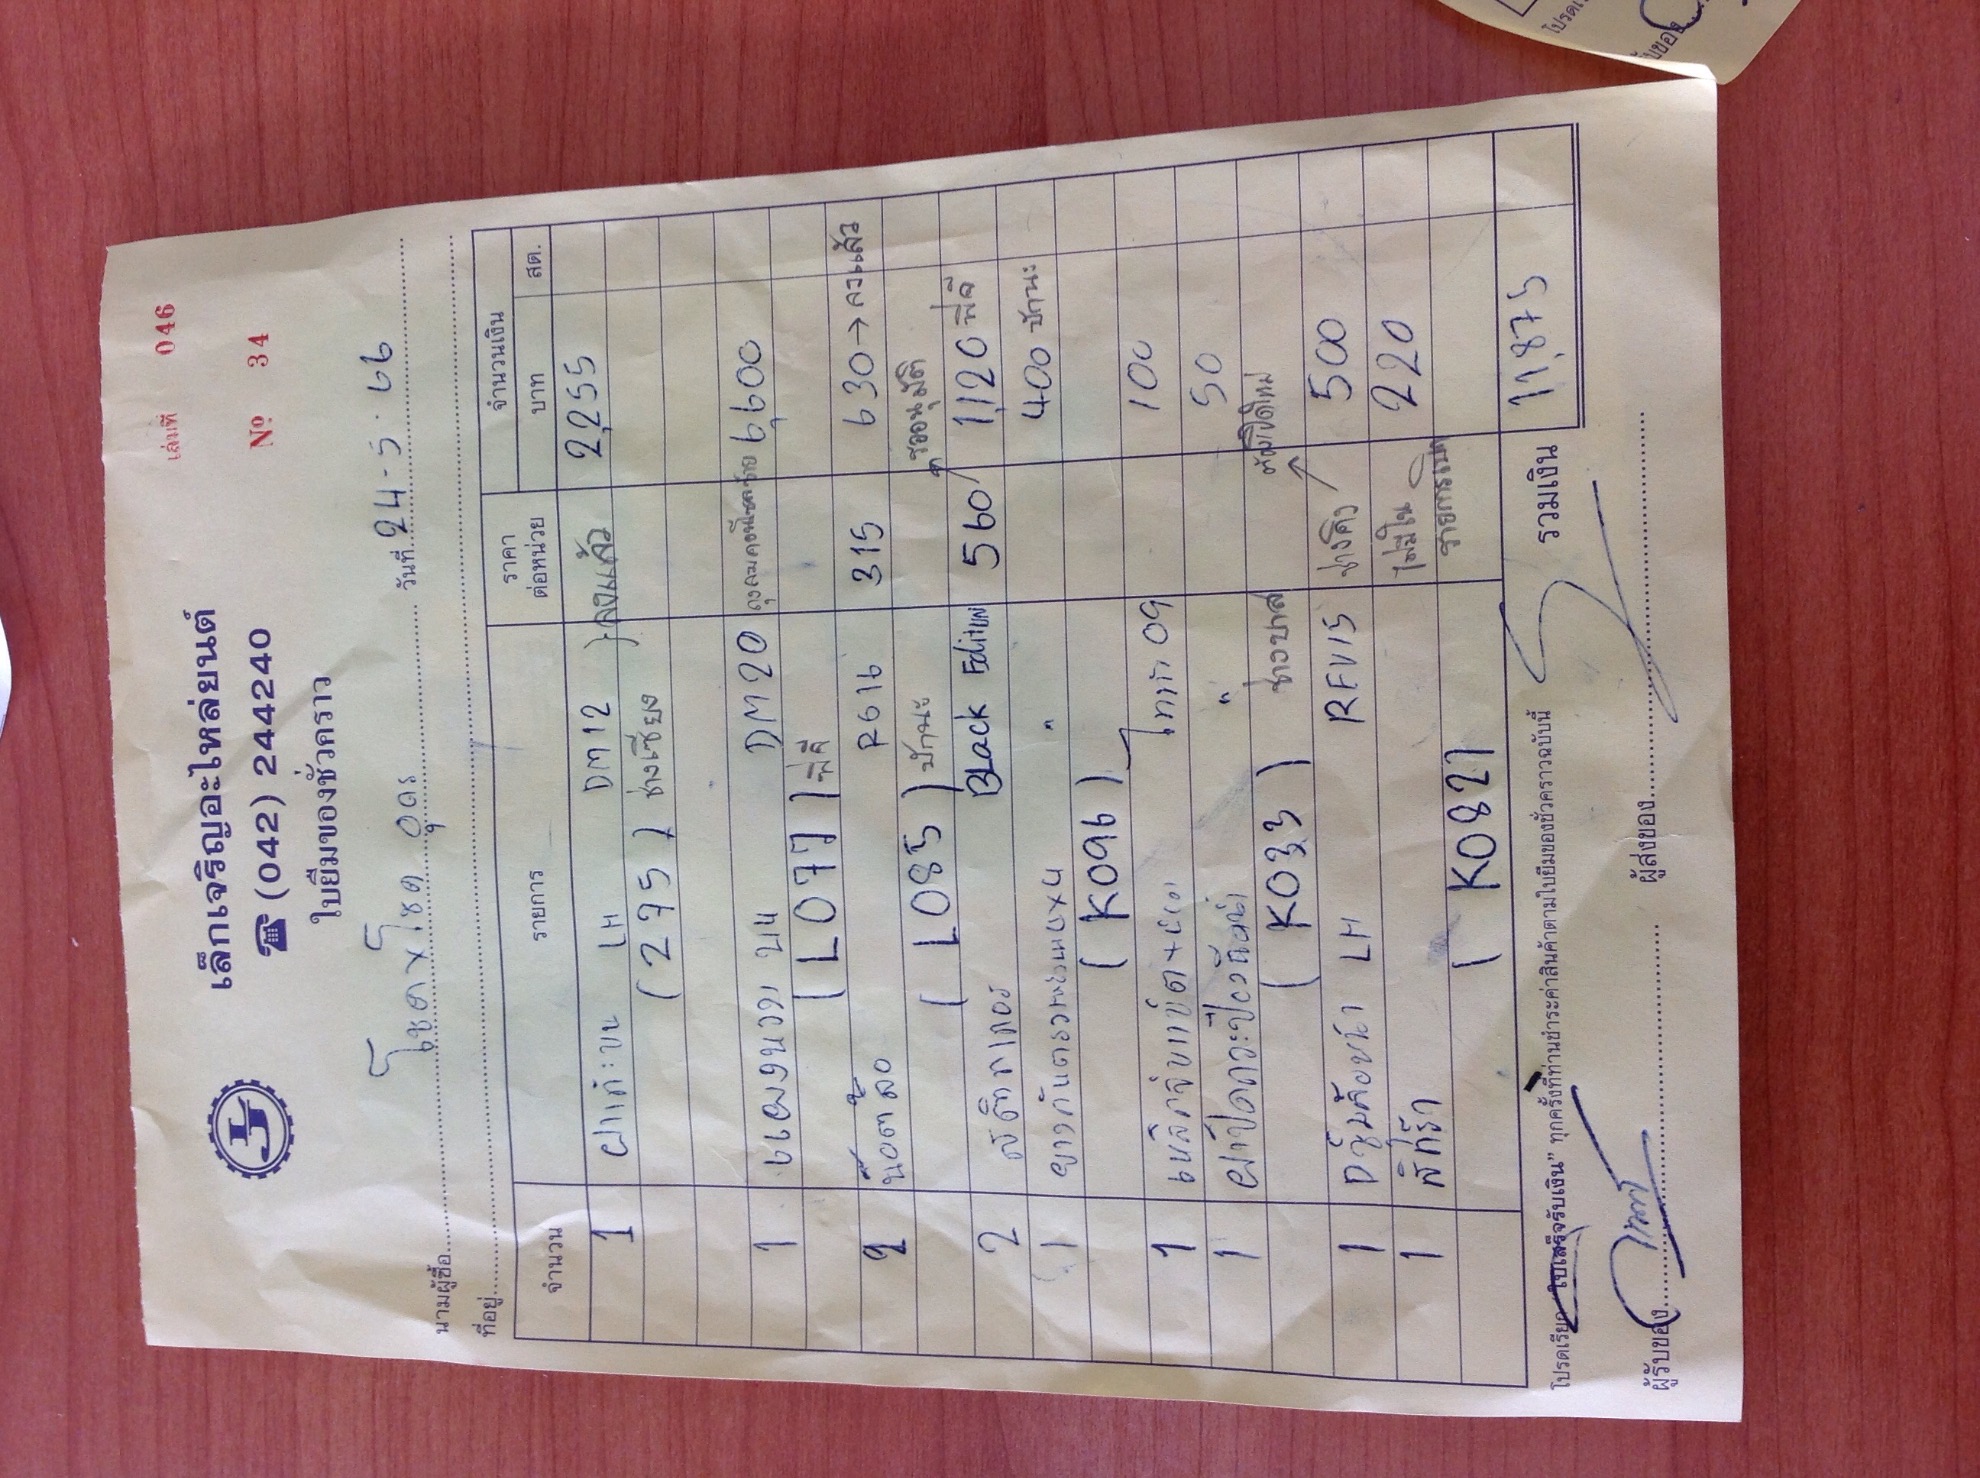 เล่มที่ 046
เล็กเจริญอะไหล่ยนต์
☎ (042) 244240
Nº 34
ใบยืมของชั่วคราว
นามผู้ซื้อ โชคxโชค อุดร วันที่ 24-5-66
ที่อยู่
จำนวน รายการ ราคาต่อหน่วย จำนวนเงิน
บาท สต.
1 ฝาแค๊ะขน LH DM12 } ลงแล้ว 2,255
(275) ช่างเซียง
1 แผงนวด บน DM20 6,600
(L077) ฟลี
2 น๊อตล้อ RG16 315 630 → ลงแล้ว
(L085) ปักนะ รออนุมัติ
2 สติกเกอร์ Black Edition 560 1,120 ฟลี
1 " 400 ปักนะ
(K096)
1 ไททัน 09 100
1 " 50
(K033) ช่างบาส ต้องเปิดใหม่
1 LH REV15 ช่างคิง 500
1 ไม่มีใน 220
(K082) รายการเบิก
รวมเงิน 11,875
โปรดเรียก "ใบเสร็จรับเงิน" ทุกครั้งที่ท่านชำระค่าสินค้าตามใบยืมของชั่วคราวฉบับนี้
ผู้รับของ ผู้ส่งของ